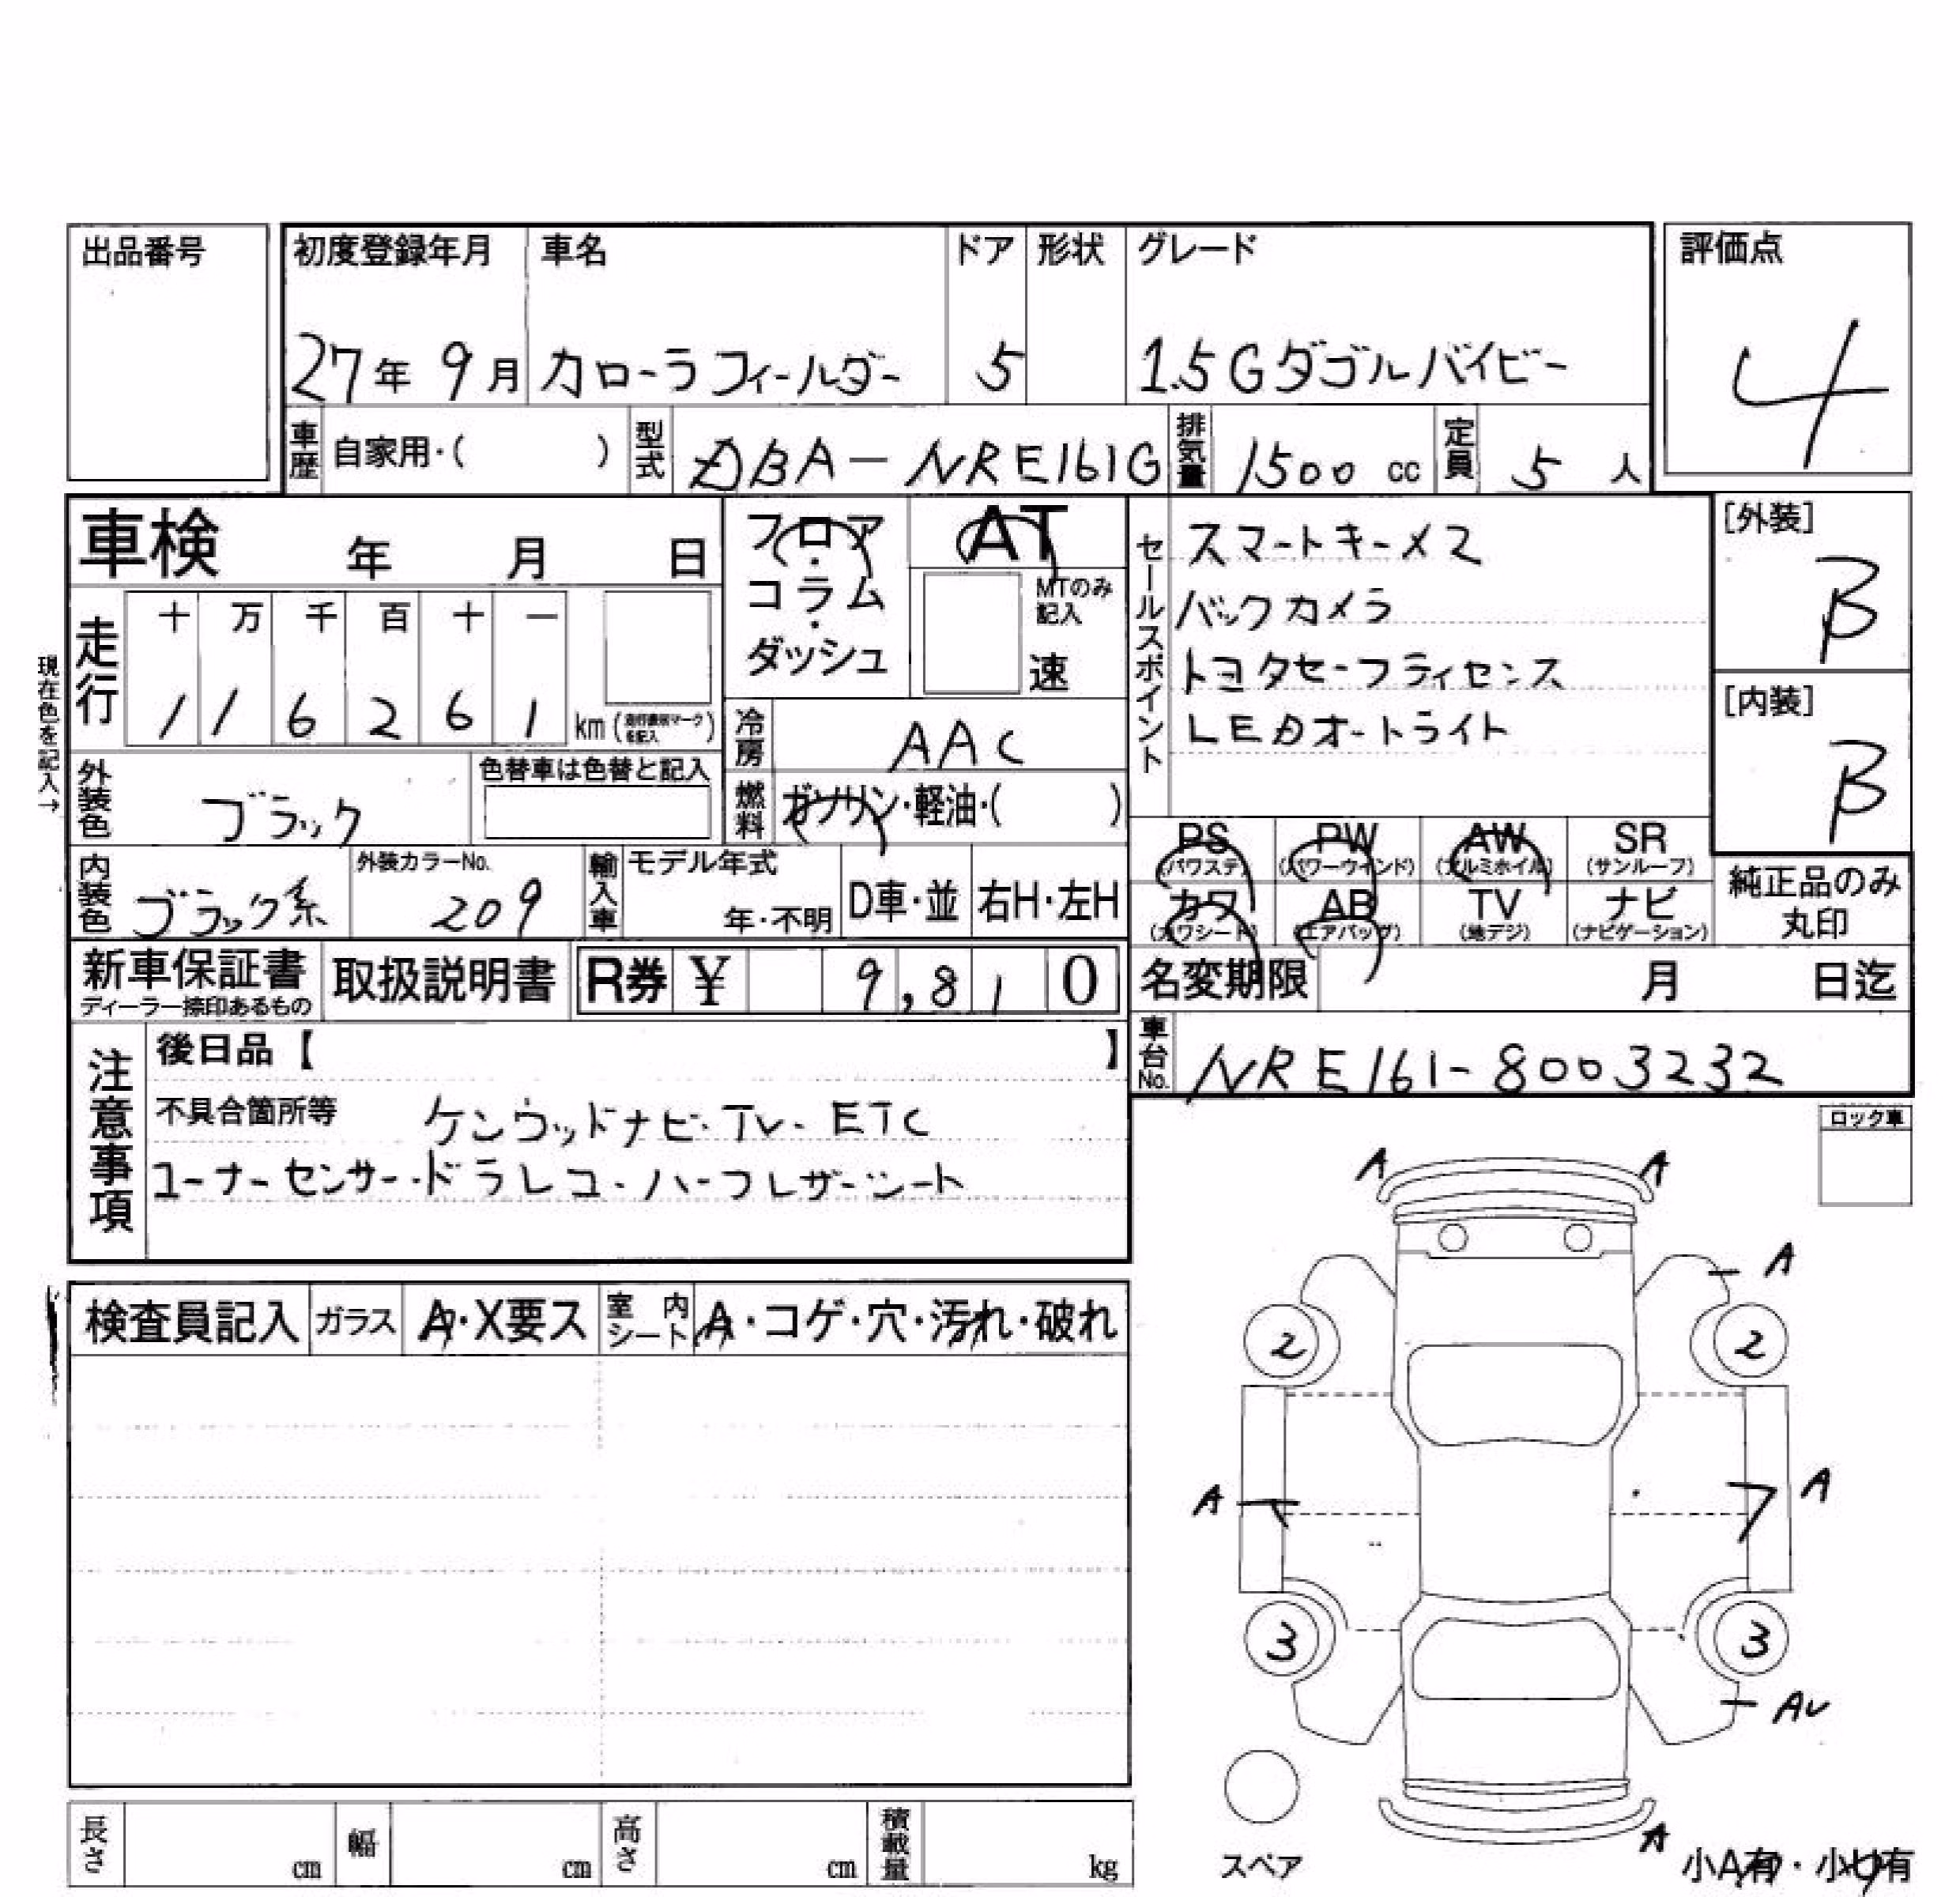 出品番号
初度登録年月 車名 ドア 形状 グレード 評価点
27年 9月 カローラフィールダー 5 1.5Gダブルバイビー 4
車歴 自家用・( ) 型式 DBA-NRE161G 排気量 1500 cc 定員 5 人
車検 年 月 日
フロア・コラム・ダッシュ
AT
MTのみ記入
速
現在色を記入→
走行 十 万 千 百 十 一
1 1 6 2 6 1 km(走行票板マークを記入)
冷房 AAC
燃料 ガソリン・軽油・( )
外装色 ブラック
色替車は色替と記入
内装色 ブラック系
外装カラーNo. 209
輸入車 モデル年式 年・不明 D車・並 右H・左H
セールスポイント
スマートキーメ2
バックカメラ
トヨタセーフティセンス
LEDオートライト
[外装] B
[内装] B
PS (パワステ) PW (パワーウィンド) AW (アルミホイル) SR (サンルーフ)
カワ (カワシート) AB (エアバッグ) TV (地デジ) ナビ (ナビゲーション)
純正品のみ丸印
新車保証書 ディーラー捺印あるもの 取扱説明書 R券 ¥ 9,810
名変期限 月 日迄
車台No. NRE161-8003232
注意事項
後日品【 】
不具合箇所等 ケンウッドナビ・TV・ETC
コーナーセンサー・ドラレコ・ハーフレザーシート
ロック車
検査員記入 ガラス A・X要ス 室内シート A・コゲ・穴・汚れ・破れ
A A
A
2 2
A A
3 3
AU
A
スペア
小A有・小U有
長さ cm 幅 cm 高さ cm 積載量 kg